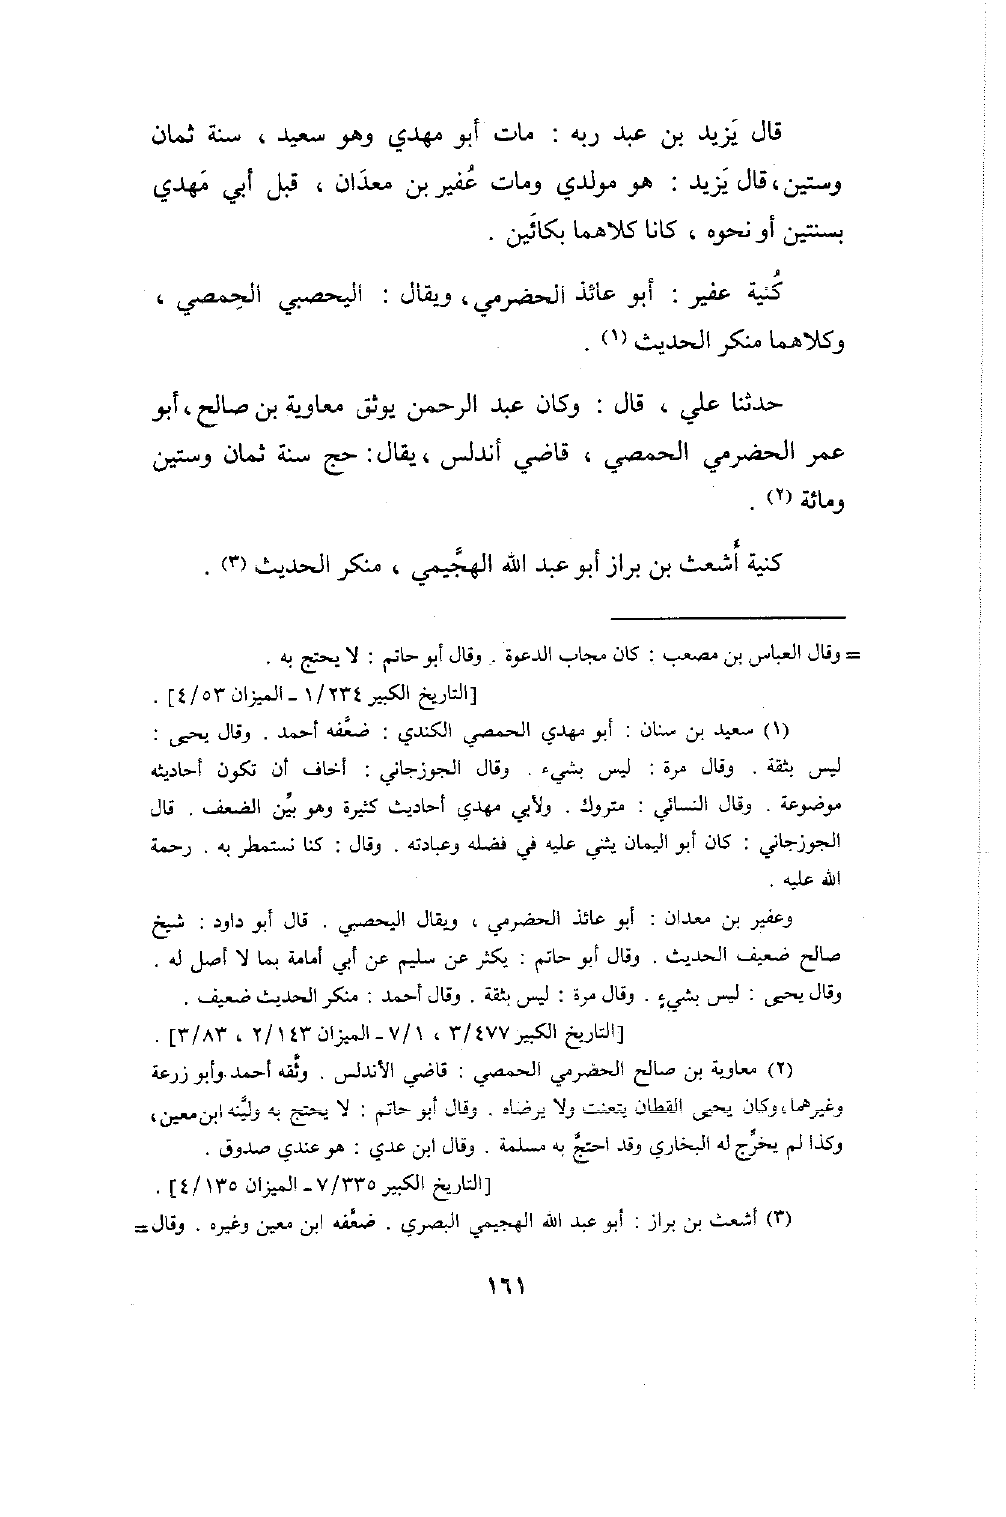 قال يَزيد بن عبد ربه : مات أبو مهدي وهو سعيد ، سنة ثمان
وستين ، قال يَزيد : هو مولدي ومات عُفير بن معدَان ، قبل أبي مَهدي
بسنتين أو نحوه ، كانا كلاهما بكائَين .
كُنية عفير : أبو عائذ الحضرمي ، ويقال : اليحصبي الحِمصي ،
وكلاهما منكر الحديث (١) .
حدثنا علي ، قال : وكان عبد الرحمن يوثق معاوية بن صالح ، أبو
عمر الحضرمي الحمصي ، قاضي أندلس ، يقال : حج سنة ثمان وستين
ومائة (٢) .
كنية أَشعث بن براز أبو عبد الله الهجَّيمي ، منكر الحديث (٣) .
= وقال العباس بن مصعب : كان مجاب الدعوة . وقال أبو حاتم : لا يحتج به .
[التاريخ الكبير ١/٢٣٤ - الميزان ٤/٥٣] .
(١) سعيد بن سنان : أبو مهدي الحمصي الكندي : ضعَّفه أحمد . وقال يحيى :
ليس بثقة . وقال مرة : ليس بشيء . وقال الجوزجاني : أخاف أن تكون أحاديثه
موضوعة . وقال النسائي : متروك . ولأبي مهدي أحاديث كثيرة وهو بيِّن الضعف . قال
الجوزجاني : كان أبو اليمان يثني عليه في فضله وعبادته . وقال : كنا نستمطر به . رحمة
الله عليه .
وعفير بن معدان : أبو عائذ الحضرمي ، ويقال اليحصبي . قال أبو داود : شيخ
صالح ضعيف الحديث . وقال أبو حاتم : يكثر عن سليم عن أبي أمامة بما لا أصل له .
وقال يحيى : ليس بشيءٍ . وقال مرة : ليس بثقة . وقال أحمد : منكر الحديث ضعيف .
[التاريخ الكبير ٣/٤٧٧ ، ٧/١ - الميزان ٢/١٤٣ ، ٣/٨٣] .
(٢) معاوية بن صالح الحضرمي الحمصي : قاضي الأندلس . وثَّقه أحمد وأبو زرعة
وغيرهما ، وكان يحيى القطان يتعنت ولا يرضاه . وقال أبو حاتم : لا يحتج به وليَّنه ابن معين ،
وكذا لم يخرَّج له البخاري وقد احتجَّ به مسلمة . وقال ابن عدي : هو عندي صدوق .
[التاريخ الكبير ٧/٣٣٥ - الميزان ٤/١٣٥] .
(٣) أشعث بن براز : أبو عبد الله الهجيمي البصري . ضعَّفه ابن معين وغيره . وقال =
١٦١